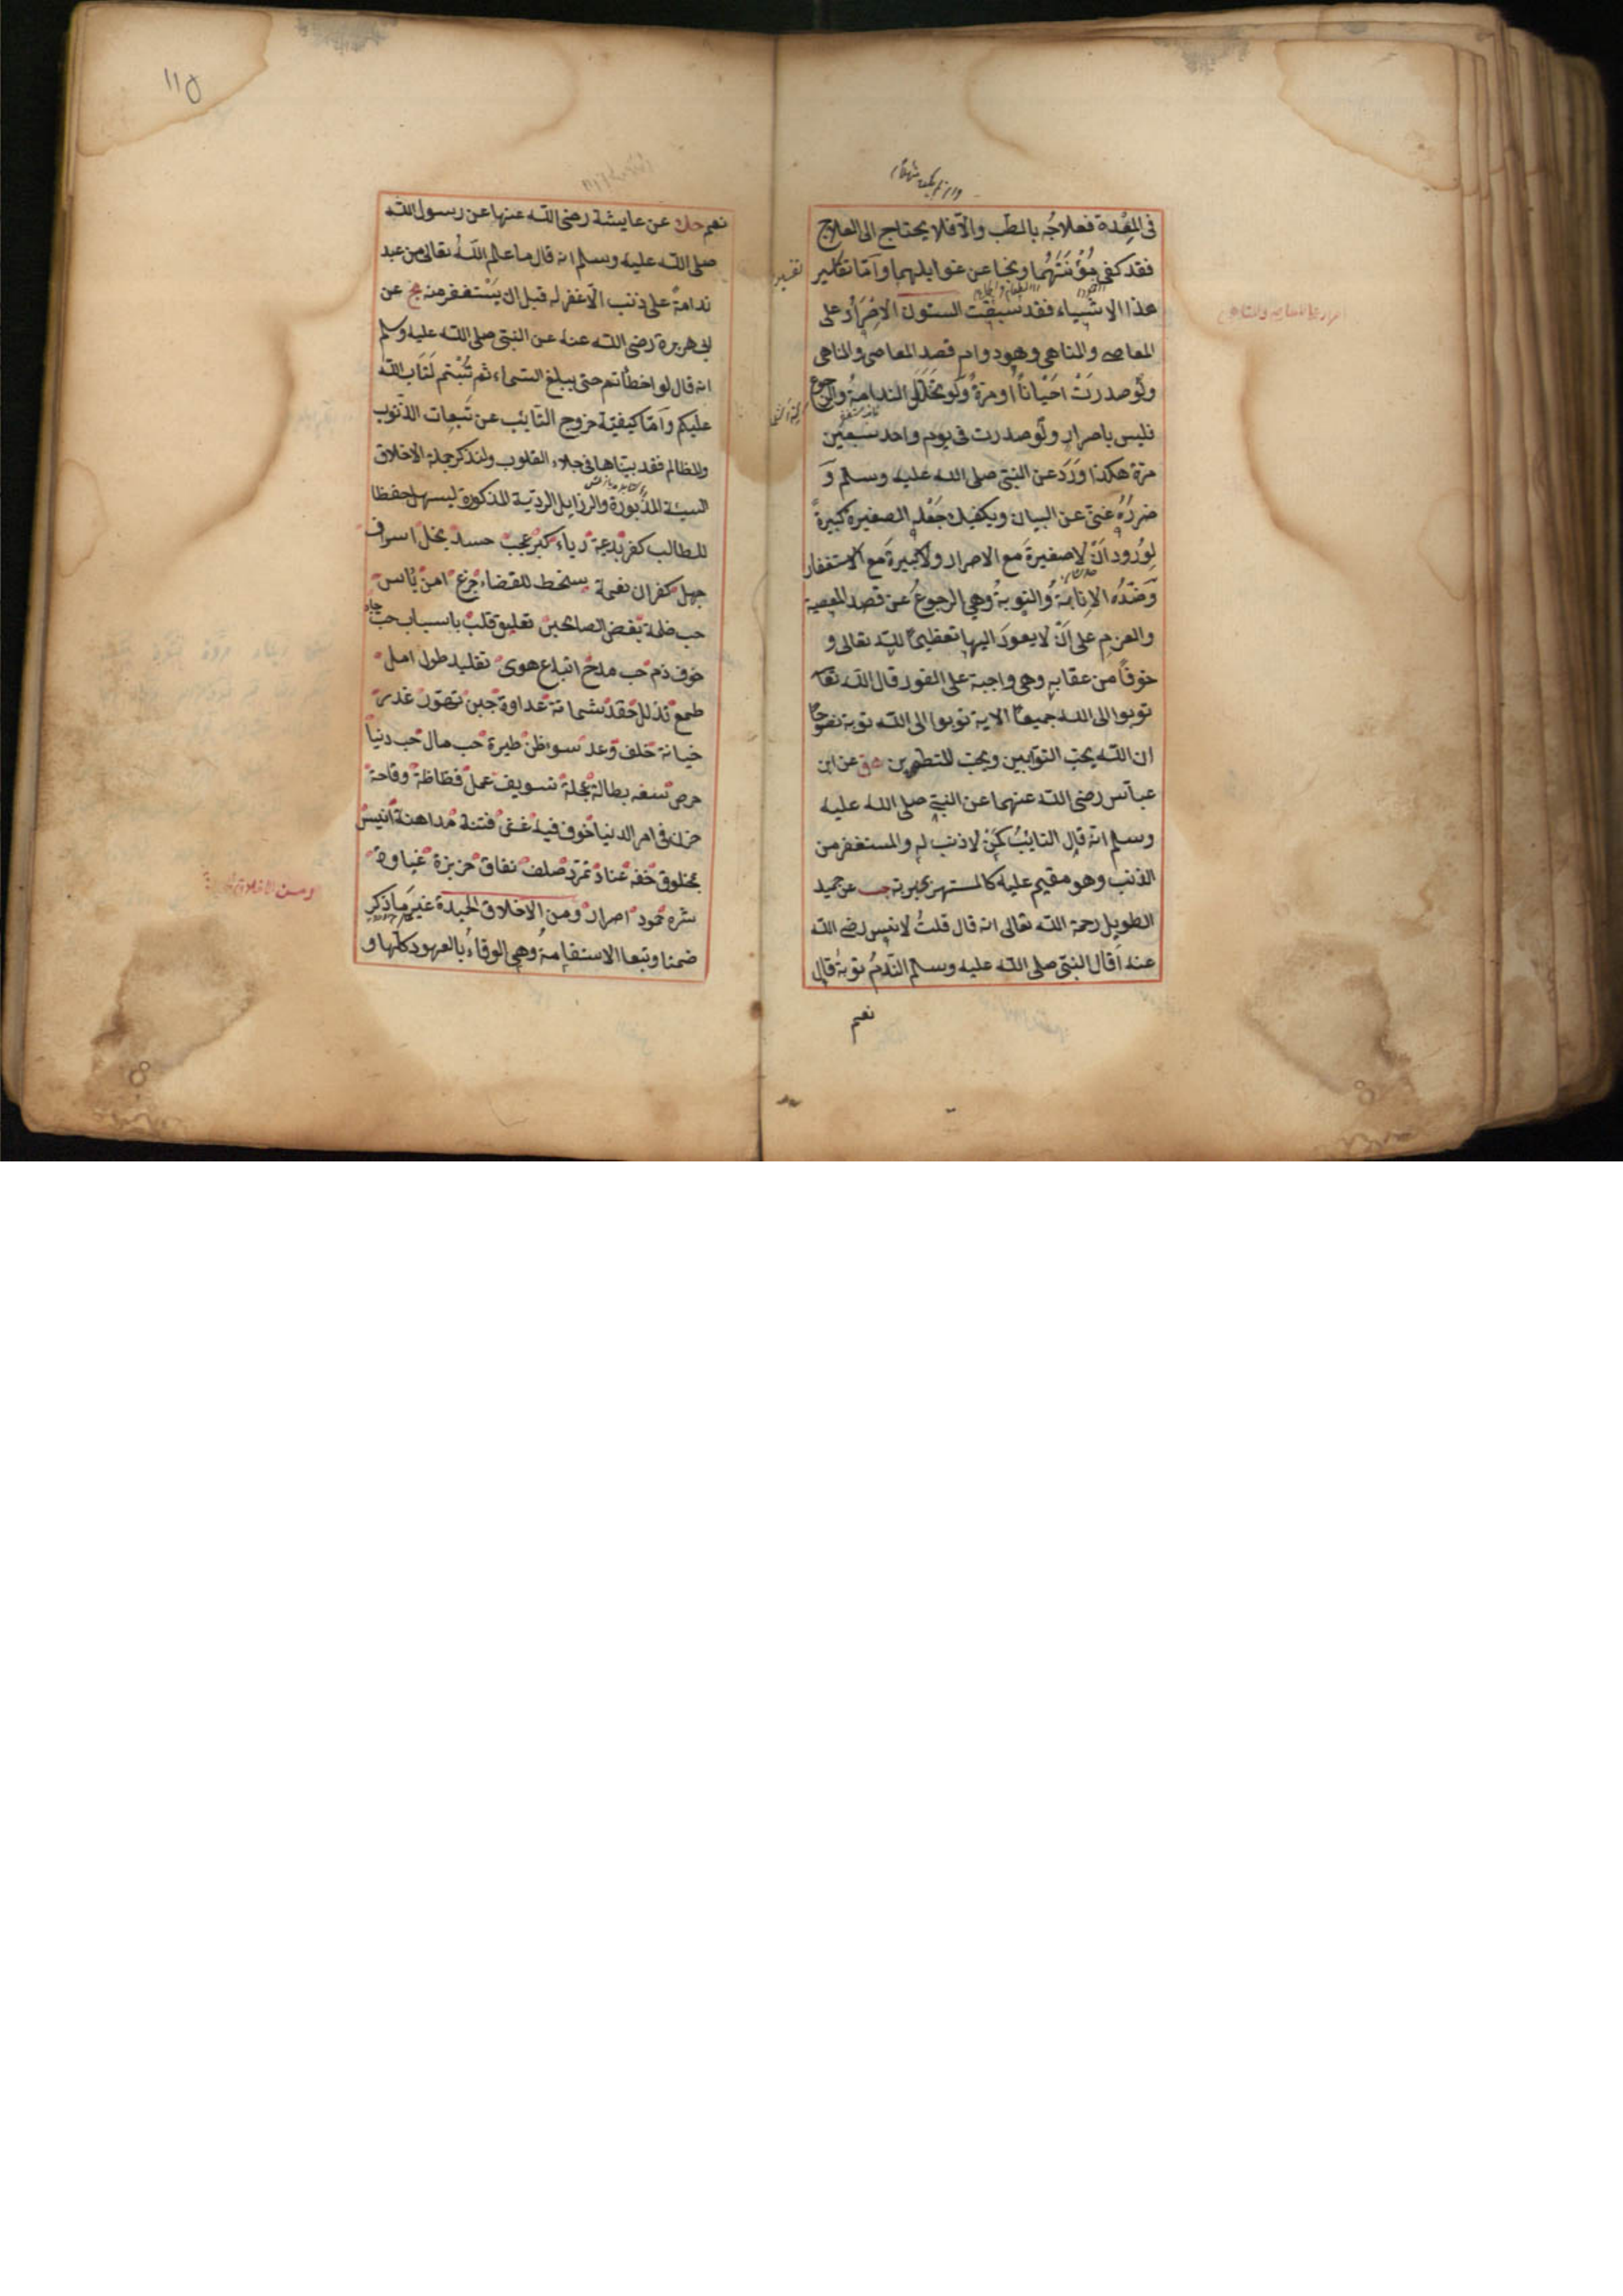 فى المعدة فعلاجه بالطب والا فلا يحتاج الى العلاج
فقد كفى مؤنتهما ونجا عن غوايلهما واما تفسير
هذا الاشياء فقد سبقت الستون الاصرار على
المعاصى والمناهى وهو دوام قصد المعاصى والمناهى
ولو صدرت احيانا او مرة ولو تخلل الندامة والرجوع
فليس باصرار ولو صدرت فى يوم واحد سبعين
مرة هكذا ورد عن النبى صلى الله عليه وسلم و
ضرره غنى عن البيان ويكفيك جعله الصغيرة كبيرة
لورود ان لا صغيرة مع الاصرار ولا كبيرة مع الاستغفار
وضده الانابة والتوبة وهى الرجوع عن قصد المعصية
والعزم على ان لا يعود اليها تعظيما لله تعالى و
خوفا من عقابه وهى واجبة على الفور قال الله تعا
توبوا الى الله جميعا الاية توبوا الى الله توبة نصوحا
ان الله يحب التوابين ويحب المتطهرين هق عن ابن
عباس رضى الله عنهما عن النبى صلى الله عليه
وسلم انه قال التائب كمن لا ذنب له والمستغفر من
الذنب وهو مقيم عليه كالمستهزئ بربه حب عن حميد
الطويل رحمة الله تعالى انه قال قلت لانس رضى الله
عنه أقال النبى صلى الله عليه وسلم الندم توبة قال
نعم
١١٥
نعم حك عن عايشة رضى الله عنها عن رسول الله
صلى الله عليه وسلم انه قال ما علم الله تعالى من عبد
ندامة على ذنب الا غفر له قبل ان يستغفر منه مج عن
ابى هريرة رضى الله عنه عن النبى صلى الله عليه وسلم
انه قال لو اخطأتم حتى يبلغ السماء ثم تبتم لتاب الله
عليكم واما كيفية خروج التائب عن تبعات الذنوب
والمظالم فقد بيناها فى جلاء القلوب ولنذكر جملة الاخلاق
السيئة المذبورة والرزايل الردية المذكورة ليسهل حفظا
للطالب كفر بدعة رياء كبر عجب حسد بخل اسراف
جهل كفران نعمة سخط للقضاء جزع امن يأس
حب ظلمة بغض الصالحين تعليق قلب باسباب حب جاه
خوف ذم حب مدح اتباع هوى تقليد طول امل
طمع تذلل حقد شماتة عداوة جبن تهور غدر
خيانة خلف وعد سوء ظن طيرة حب مال حب دنيا
حرص سفه بطالة عجلة تسويف عمل فظاظة وقاحة
حزن فى امر الدنيا خوف فيه غش فتنة مداهنة انس
بمخلوق خفه عناد تمرد صلف نفاق جربزة غباوة
شره خمود اصرار ومن الاخلاق الحميدة غير ما ذكر
ضمنا وتبعا الاستقامة وهى الوفاء بالعهود كلها و
ومن الاخلاق